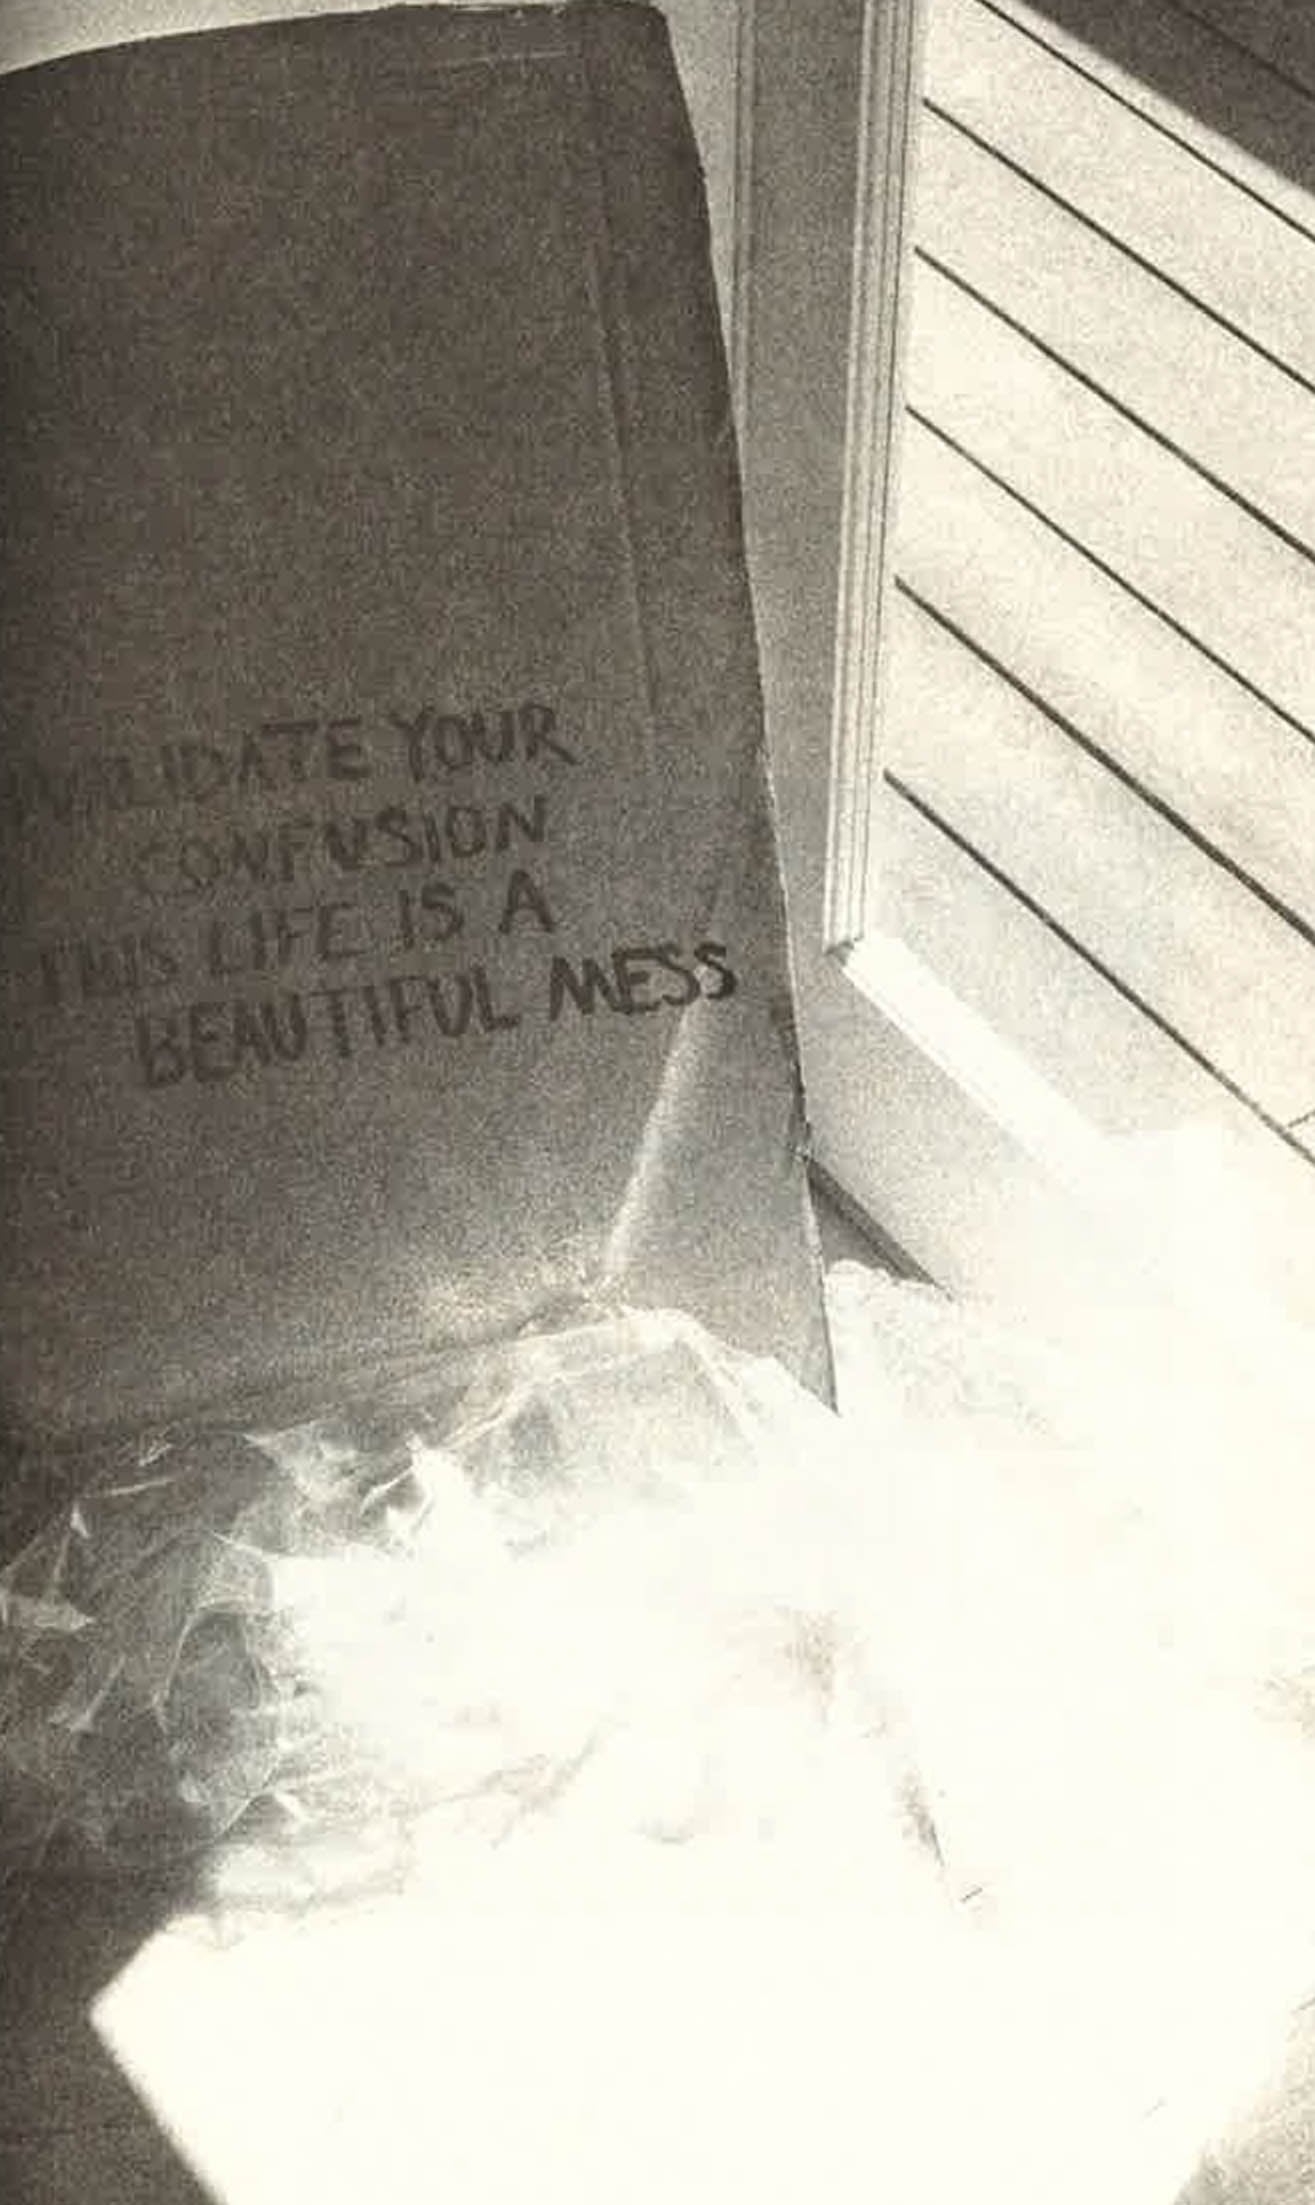 VALIDATE YOUR
CONFUSION
THIS LIFE IS A
BEAUTIFUL MESS